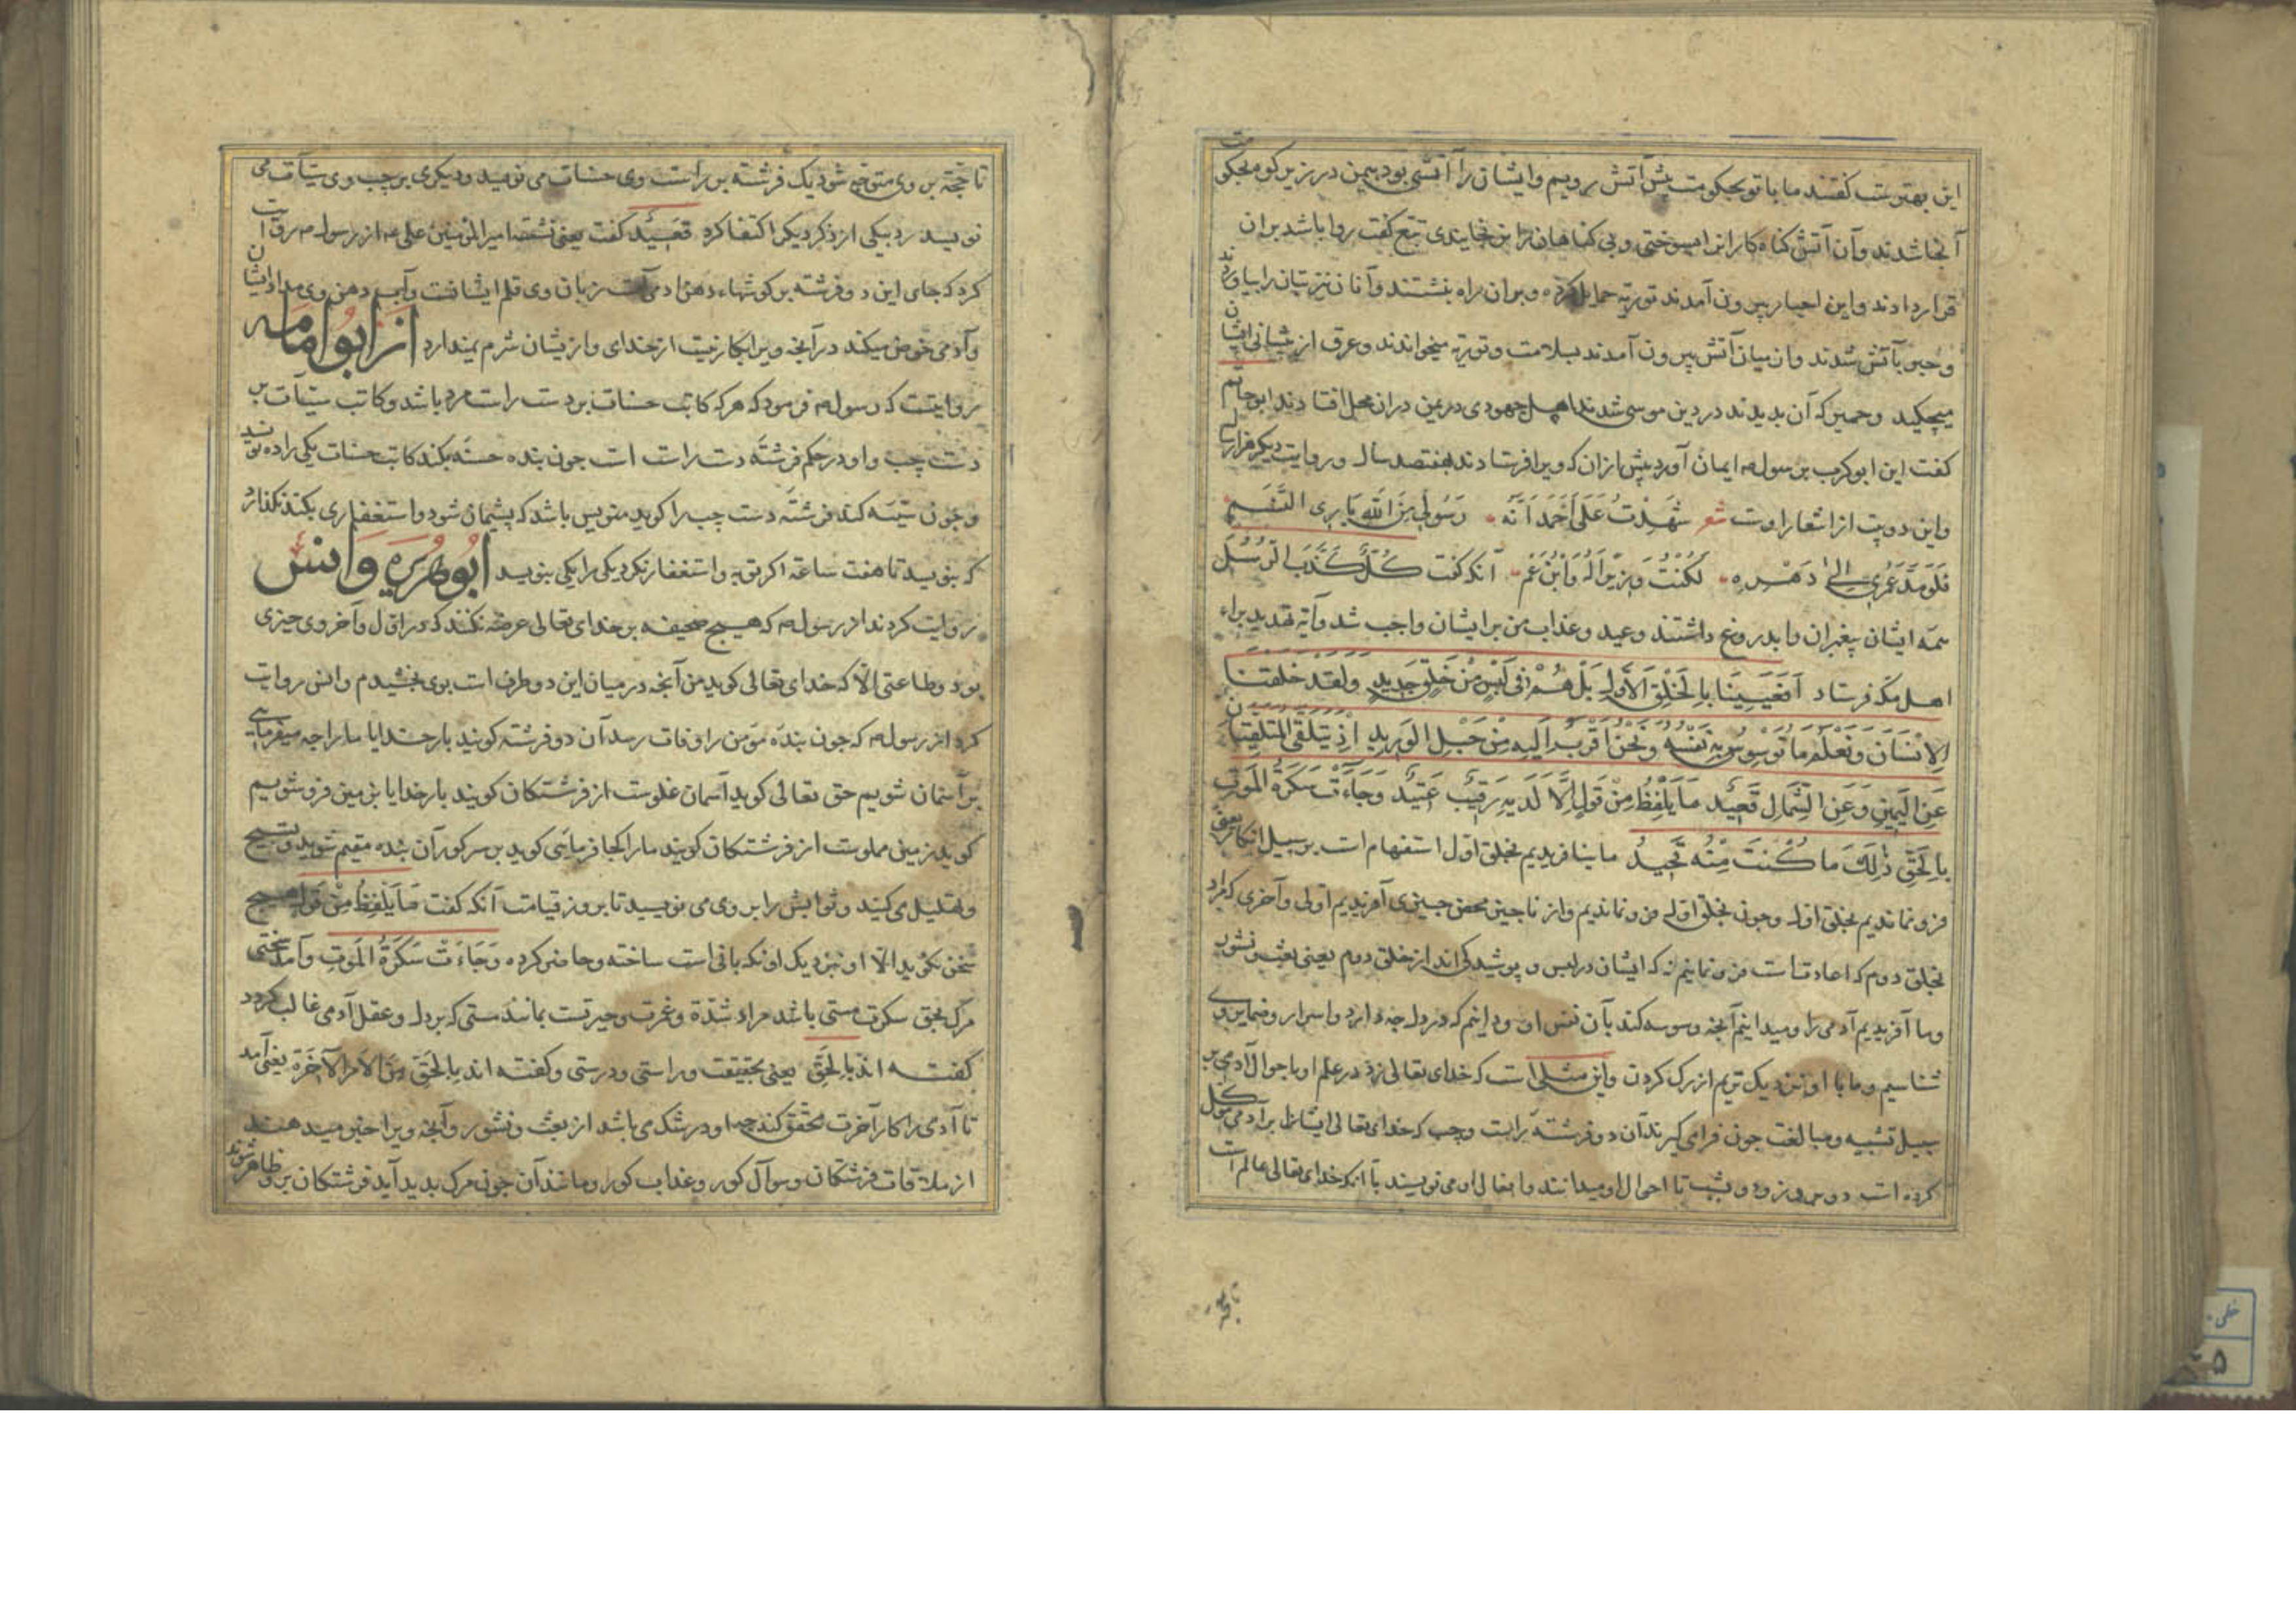 این بهترست گفتند ما با تو بحکومت پیش آتش رویم و ایشان را آتشی بود بیمن در زیر کوه بحکومت
آنجا شدند و آن آتش گناه کارانرا بسوختی و بی گناهان را نرنجانیدی تبع گفت روا باشد بران
قرار دادند و این احبار بیرون آمدند توریة حمایل کرده و بران راه بنشستند و آنان نیز بتان را بیاوردند
و جمله بآتش شدند و از میان آتش بیرون آمدند بسلامت و توریة میخواندند و عرق از پیشانی ایشان
میچکید و حمیر که آن بدیدند در دین موسی شدند اصل جهودی در یمن دران محل افتادند ابو حاتم
کفت این ابوکرب برسول ص ایمان آورد پیش ازان که ویرا فرستادند بهفتصد سال و روایت دیگر هزار سال
و این دو بیت از اشعار اوست شعر شَهِدْتُ عَلَی اَحْمَدَ اَنَّهُ رَسُولٌ مِنَ اللهِ بَارِی النَّسَمِ
فَلَو مُدَّ عُمْرِی اِلی دَهْرِهِ لَکُنْتُ وَزِیرًا لَهُ وَابْنَ عَمْ آنکه کفت کُلٌّ کَذَّبَ الرُّسُلَ
همه ایشان پیغمبران را بدروغ داشتند وعید و عذاب من بر ایشان واجب شد و آیه تهدید براء
اهل مکه فرستاد اَفَعَیِینَا بِالْخَلْقِ الْاَوَّلِ بَلْ هُمْ فِی لَبْسٍ مِنْ خَلْقٍ جَدِیدٍ وَلَقَدْ خَلَقْنَا
الْاِنْسَانَ وَنَعْلَمُ مَا تُوَسْوِسُ بِهِ نَفْسُهُ وَنَحْنُ اَقْرَبُ اِلَیْهِ مِنْ حَبْلِ الْوَرِیدِ اِذْ یَتَلَقَّی الْمُتَلَقِّیَانِ
عَنِ الْیَمِینِ وَعَنِ الشِّمَالِ قَعِیدٌ مَا یَلْفِظُ مِنْ قَوْلٍ اِلَّا لَدَیْهِ رَقِیبٌ عَتِیدٌ وَجَاءَتْ سَکْرَةُ الْمَوْتِ
بِالْحَقِّ ذٰلِکَ مَا کُنْتَ مِنْهُ تَحِیدُ ما بنا فریدیم بخلق اول استفهام است بر سبیل انکار یعنی
فرو نماندیم بخلق اول و جون بخلق اول فرو نماندیم و از ناچیز محض جیزی آفریدیم اولی و آخری که از
بخلق دوم که اعادتست فرو نمانیم نه که ایشان در لبس و پوشیدگی اند از خلق دوم یعنی بعث و نشور
و ما آفریدیم آدمی را و میدانیم آنچه وسوسه کند بآن نفس او و دانیم که در دل چه دارد و اسرار و ضمایر وی
شناسیم و ما با او نزدیک تریم از رک کردن و این مثلی است که خدای تعالی زد در علم او باحوال آدمی بر
سبیل تشبیه و مبالغت جون فرای گیرند آن دو فرشته براست و چپ که خدای تعالی ایشانرا بر آدمی موکل
کرده است دو بروز و دو بشب تا احوال او میدانند و افعال او می نویسند با آنکه خدای تعالی عالم است
تا حجة
تا حجّة بر وی متوجه شود یک فرشته بر راست وی حسنات می نویسد و دیگری بر چپ وی سیّآت می
نویسد و بیکی از ذکر دیگر اکتفا کرد قَعِیدٌ کفت یعنی نشسته امیر المؤمنین علی ع از رسول ص روایت
کرد که جای این دو فرشته بر گوشهاء دهن آدمی است زبان وی قلم ایشانست و آب دهن وی مداد ایشان
و آدمی خوض میکند در آنچه ویرا بکار نیست از خدای و از یشان شرم نمیدارد از ابو امامه
روایتست که رسول ص فرمود که هر که کاتب حسنات بر دست راست مرد باشد و کاتب سیّآت بر
دست چپ و او در حکم فرشته دست راست است جون بنده حسنه بکند کاتب حسنات یکی را ده نویسد
و جون سیّئه کند فرشته دست چپ را کوید منویس باشد که پشیمان شود و استغفاری بکند نگذارد
که بنویسد تا هفت ساعة اکر توبه و استغفار نکرد یکی را یکی بنویسد ابوهریره و انس
روایت کردند از رسول ص که هیچ صحیفه بر خدای تعالی عرضه نکنند که در اول و آخر وی خیری
بود و طاعتی الّا که خدای تعالی کوید من آنچه در میان این دو طرف است بوی بخشیدم و انس روایت
کرد از رسول ص که جون بندهٔ مؤمن را وفات رسد آن دو فرشته کویند بار خدایا ما را چه میفرمایی
بر آسمان شویم حق تعالی کوید آسمان مملوست از فرشتکان کویند بار خدایا بزمین فرو شویم
کوید زمین مملوست از فرشتکان کویند ما را کجا فرمایی کوید بر سر کور آن بنده مقیم شوید و تسبیح
و تهلیل می کنید و ثوابش را بر وی می نویسید تا بروز قیامت آنکه کفت مَا یَلْفِظُ مِنْ قَوْلٍ هیچ
سخن نکوید الّا او نزدیک او نکهبانی است ساخته و حاضر کرده وَجَاءَتْ سَکْرَةُ الْمَوْتِ و آمد سختی
مرک بحق سکرت مستی باشد مراد شدّة و غمرت و حیرتست بمانند مستی که بر دل و عقل آدمی غالب کردد
کفته اند بِالْحَقِّ یعنی بحقیقت و راستی و درستی و کفته اند بِالْحَقِّ مِنَ الْاَمْرِ الْآخِرَة یعنی آمد
تا آدمی را کار آخرت محقق کند چه او در شک می باشد از بعث و نشور و آنچه ویرا خبر میدهند
از ملاقات فرشتکان و سوآل کور و عذاب کور و مانند آن جون مرک بدید آید فرشتکان بر وی ظاهر شوند
خطی
۵